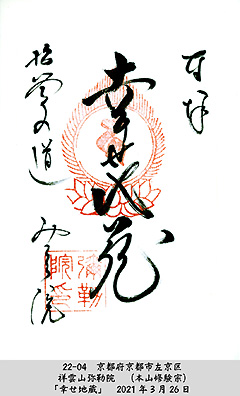 奉拝
幸せ地蔵
哲学の道 みろく院
彌勒
院印
22-04 京都府京都市左京区
祥雲山弥勒院 (本山修験宗)
「幸せ地蔵」 2021年3月26日